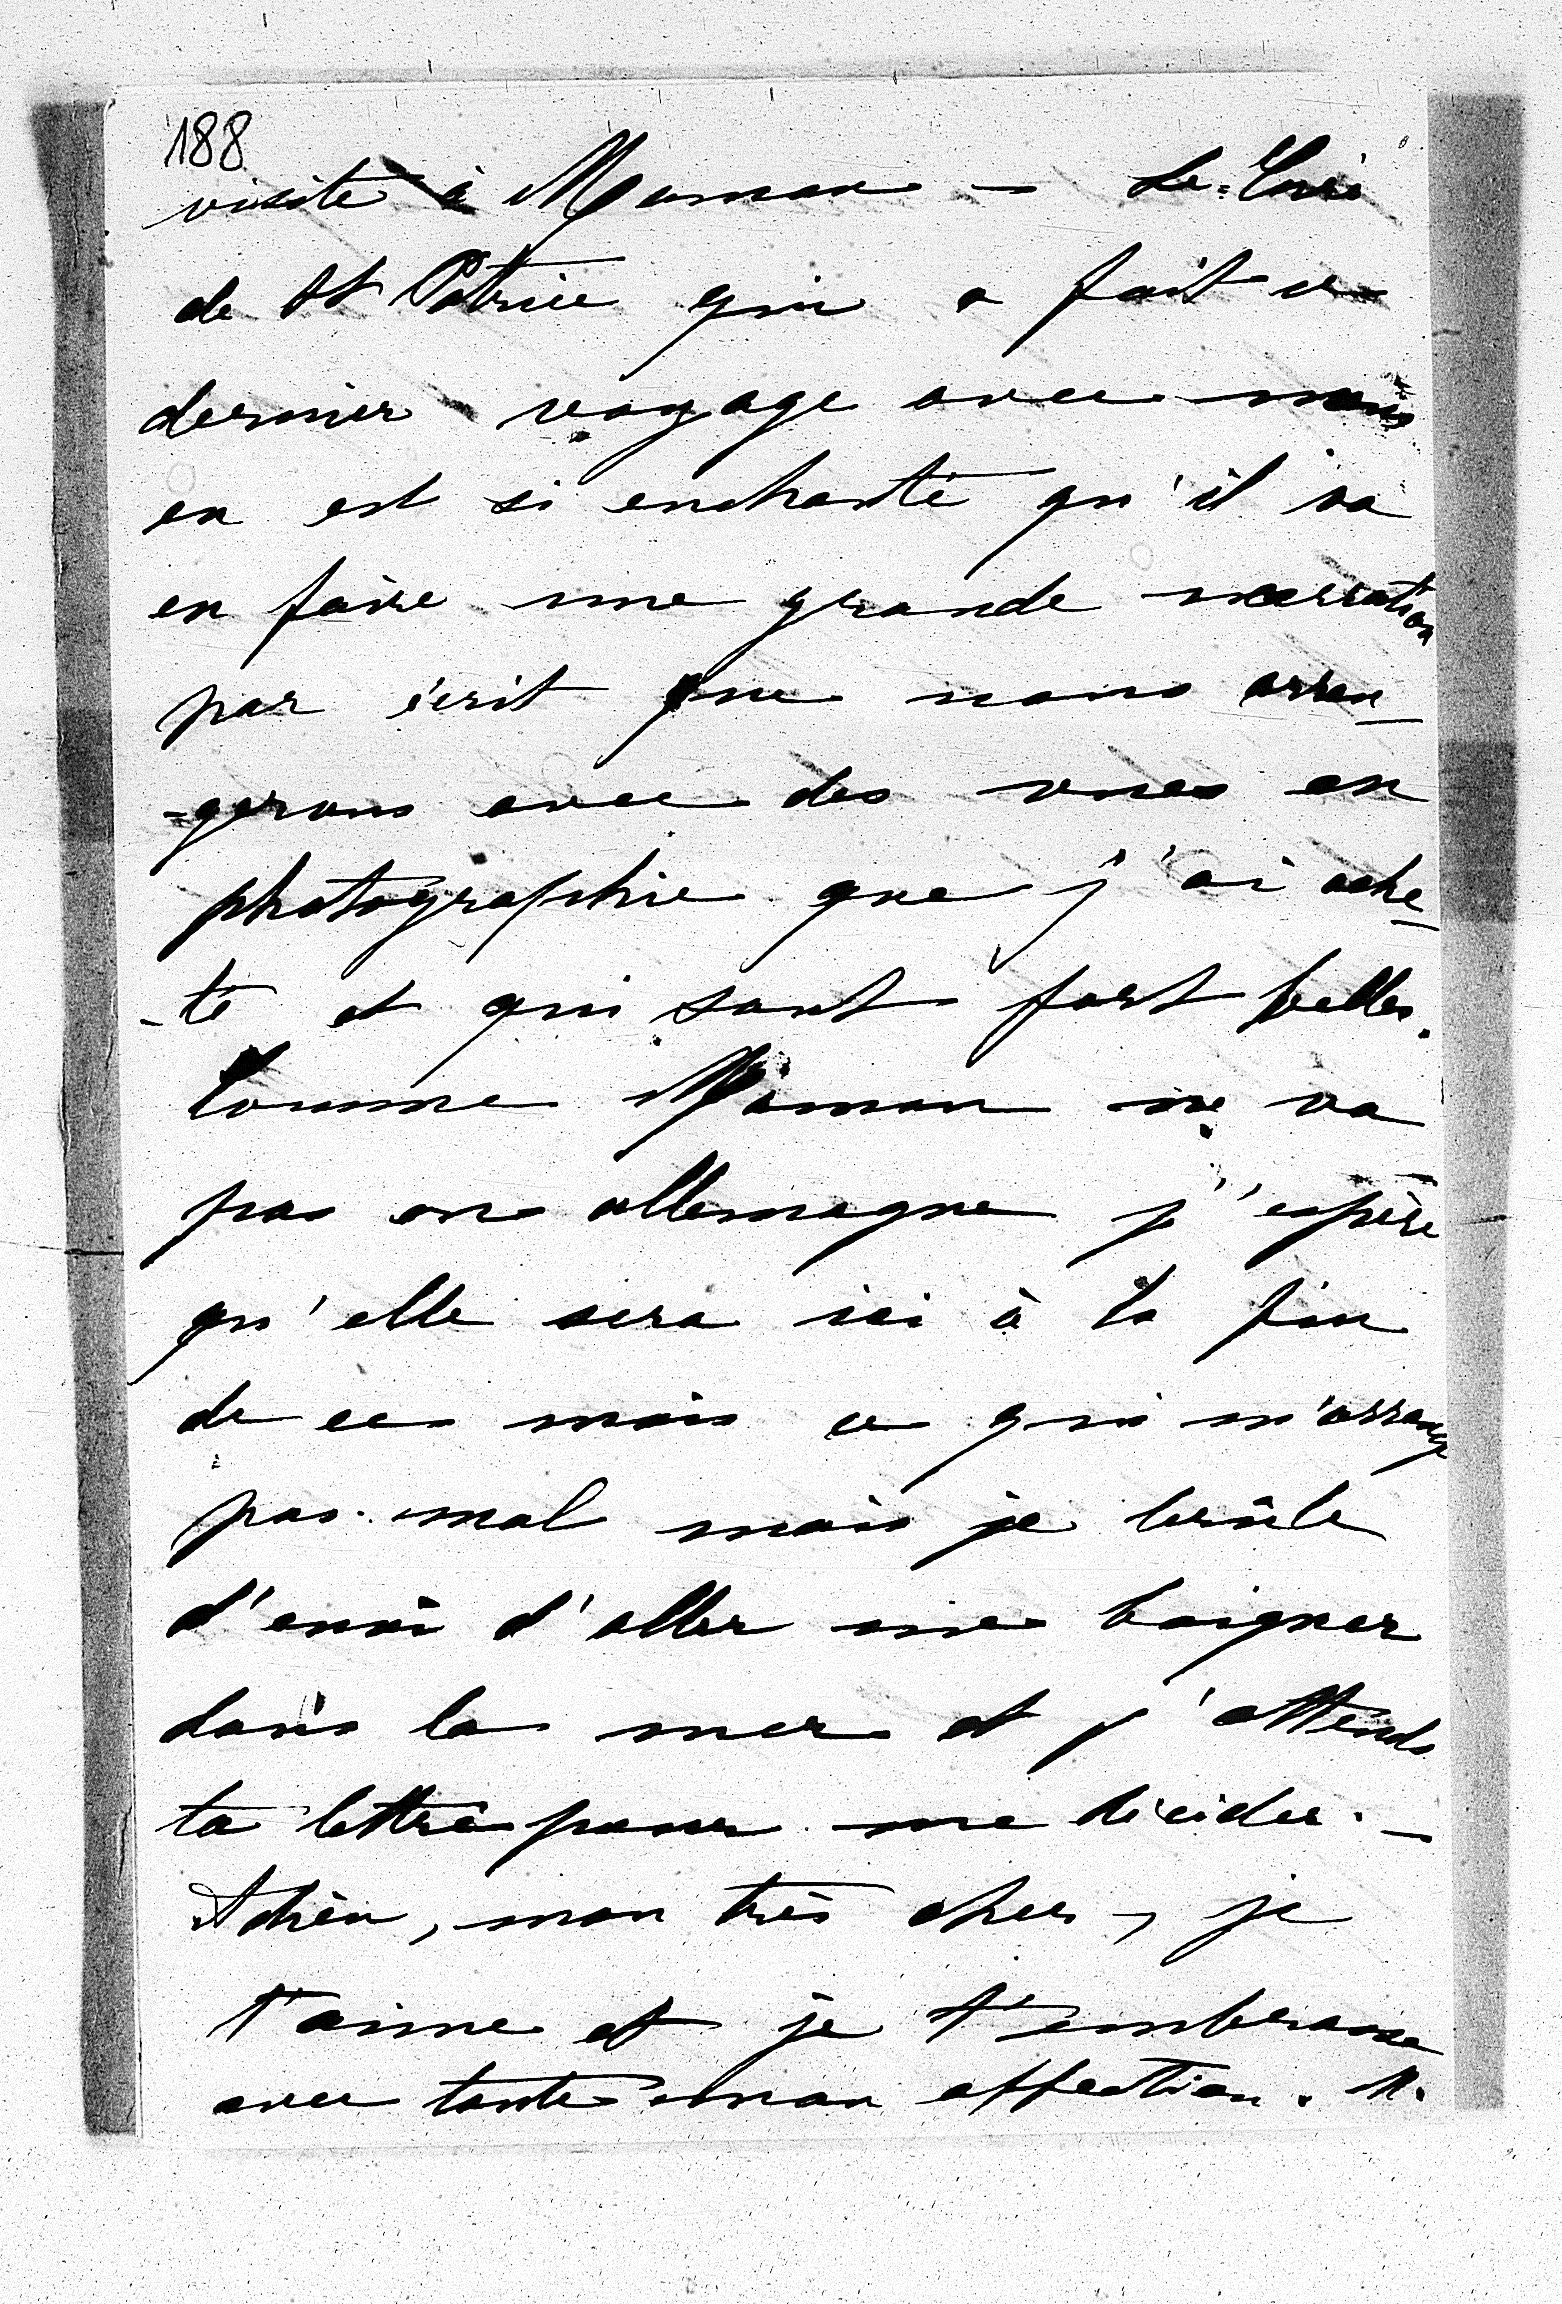 188
visite à Maman — Le Curé
de St Patrice qui a fait ce
dernier voyage avec nous
en est si enchanté qu'il va
en faire une grande narration
par écrit que nous arran-
-gerons avec des vues en
photographie que j'ai ache-
-té et qui sont fort belles.
Comme Maman ne va
pas en allemagne j'espère
qu'elle sera ici à la fin
de ce mois ce qui m'arrange
pas mal mais je brûle
d'envi d'aller me baigner
dans la mer et j'attends
ta lettre pour me décider. —
Adieu, mon très cher, je
t'aime et je t'embrasse
avec toute mon affection. M.